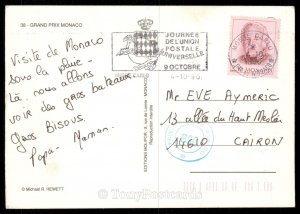 38 - GRAND PRIX MONACO
JOURNÉE
DE L'UNION
POSTALE
UNIVERSELLE
9 OCTOBRE
4-10-90
Visite de Monaco
sous la pluie -
Là, nous allons
voir des gros bateaux.
Gros Bisous.
Papa - Maman.
Mr EVE Aymeric
13 allée du Haut
14610 CAIRON
EDITIONS MOLIPOR
Reproduction interdite
© Michael R. HEWETT
© TonyPostcards